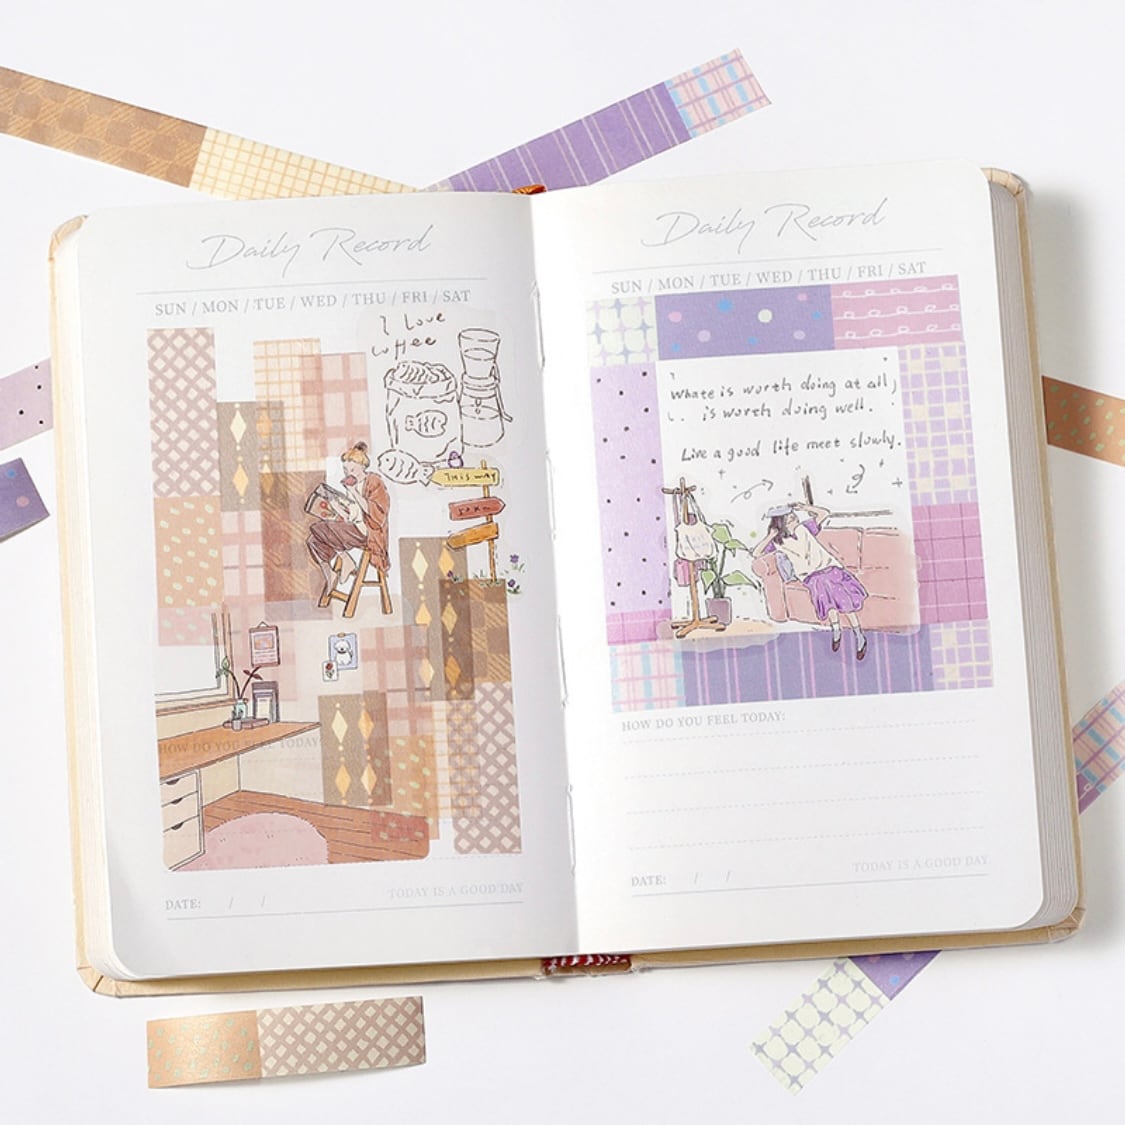 Daily Record
SUN / MON / TUE / WED / THU / FRI / SAT
I love
coffee
THIS WAY
HOW DO YOU FEEL TODAY:
DATE: / /
TODAY IS A GOOD DAY
Daily Record
SUN / MON / TUE / WED / THU / FRI / SAT
Whate is worth doing at all,
is worth doing well.
Live a good life meet slowly.
HOW DO YOU FEEL TODAY:
DATE: / /
TODAY IS A GOOD DAY